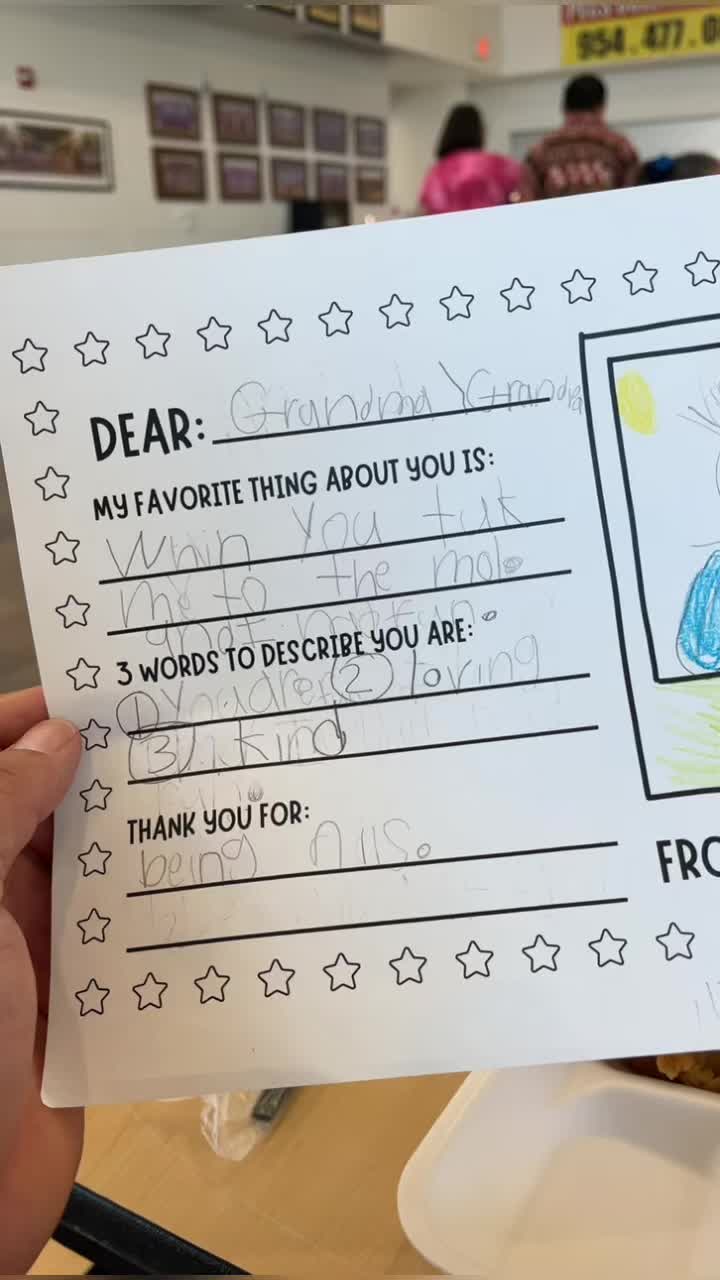 954.477.0
DEAR: Grandma \Grandpa
MY FAVORITE THING ABOUT YOU IS:
Whin You tuk
me to the mol.
3 WORDS TO DESCRIBE YOU ARE:
1 You are 2 loving
3 kind
THANK YOU FOR:
being niis.
FRO